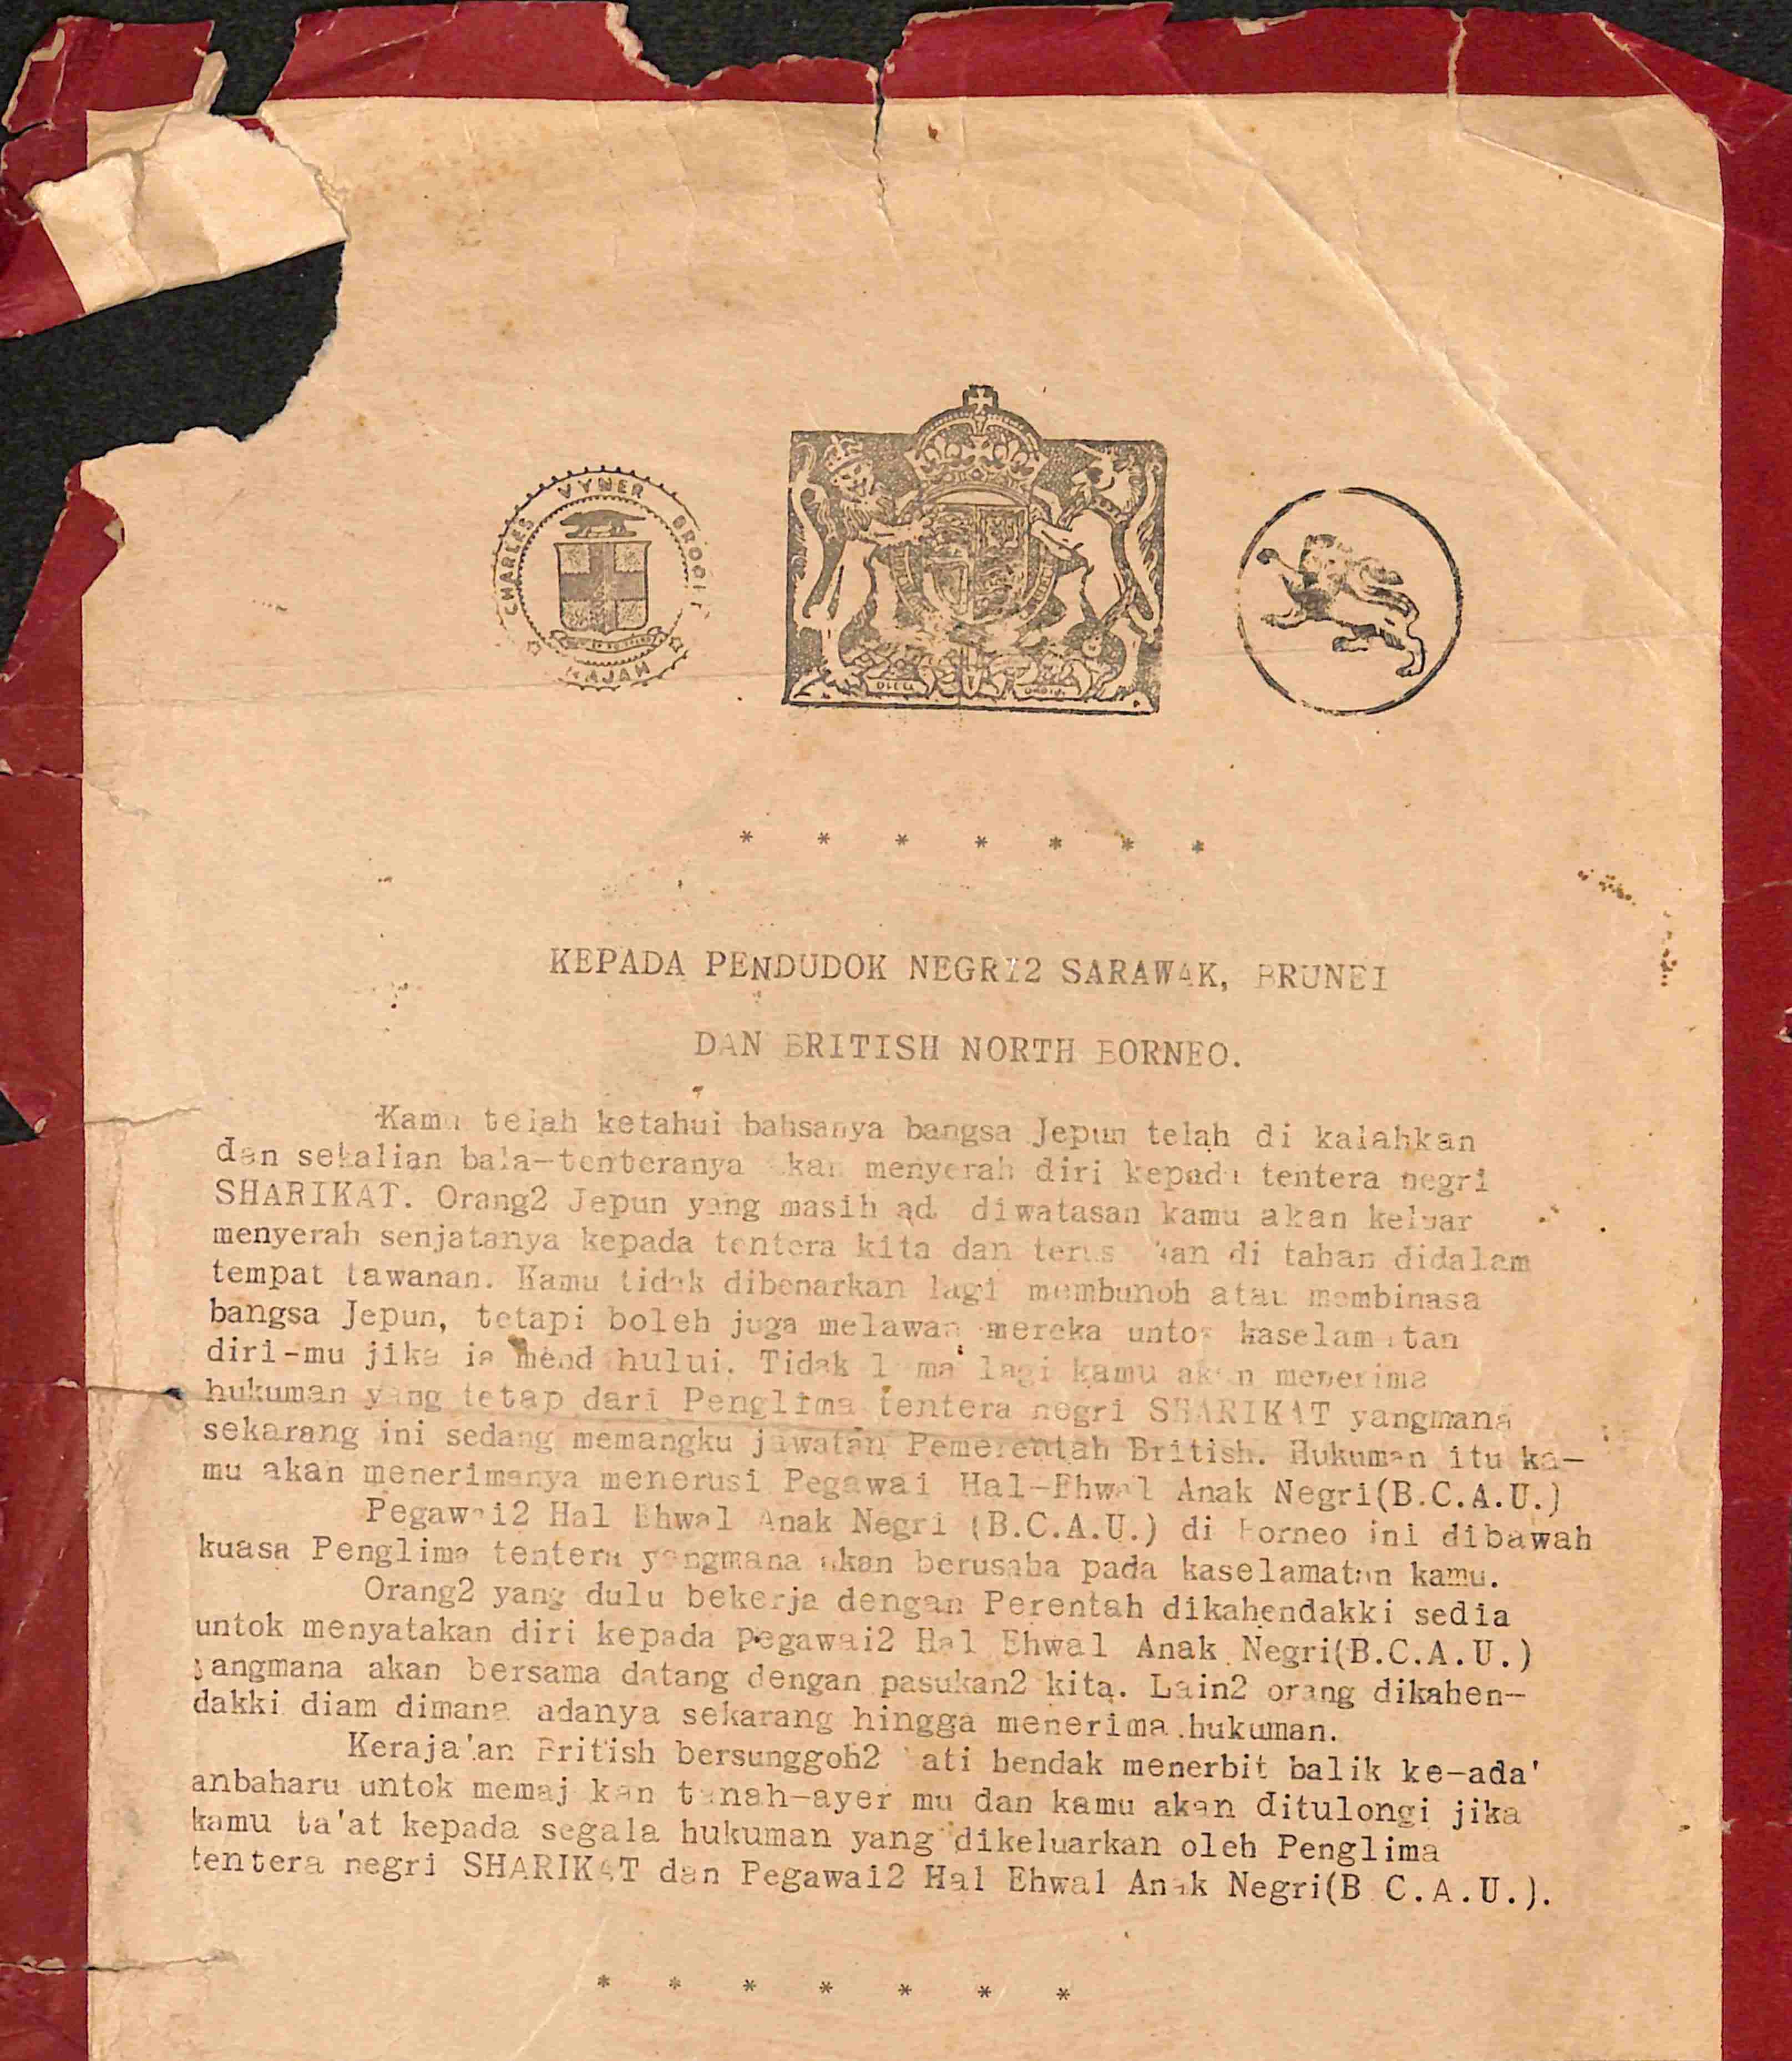 CHARLES VYNER BROOKE
RAJAH
* * * * * * *
KEPADA PENDUDOK NEGRI2 SARAWAK, BRUNEI
DAN BRITISH NORTH BORNEO.
Kamu telah ketahui bahsanya bangsa Jepun telah di kalahkan
dan sekalian bala-tenteranya akan menyerah diri kepada tentera negri
SHARIKAT. Orang2 Jepun yang masih ad diwatasan kamu akan keluar
menyerah senjatanya kepada tentera kita dan terus di tahan didalam
tempat tawanan. Kamu tidak dibenarkan lagi membunoh atau membinasa
bangsa Jepun, tetapi boleh juga melawan mereka untok kaselamatan
diri-mu jika ia mendahului. Tidak lama lagi kamu akan menerima
hukuman yang tetap dari Penglima tentera negri SHARIKAT yangmana
sekarang ini sedang memangku jawatan Pemerentah British. Hukuman itu ka-
mu akan menerimanya menerusi Pegawai Hal-Ehwal Anak Negri(B.C.A.U.)
Pegawai2 Hal Ehwal Anak Negri (B.C.A.U.) di Borneo ini dibawah
kuasa Penglima tentera yangmana akan berusaha pada kaselamatan kamu.
Orang2 yang dulu bekerja dengan Perentah dikahendakki sedia
untok menyatakan diri kepada pegawai2 Hal Ehwal Anak Negri(B.C.A.U.)
yangmana akan bersama datang dengan pasukan2 kita. Lain2 orang dikahen-
dakki diam dimana adanya sekarang hingga menerima hukuman.
Keraja'an British bersunggoh2 hati hendak menerbit balik ke-ada'
anbaharu untok memajukan tanah-ayer mu dan kamu akan ditulongi jika
kamu ta'at kepada segala hukuman yang dikeluarkan oleh Penglima
tentera negri SHARIKAT dan Pegawai2 Hal Ehwal Anak Negri(B.C.A.U.).
* * * * * * *